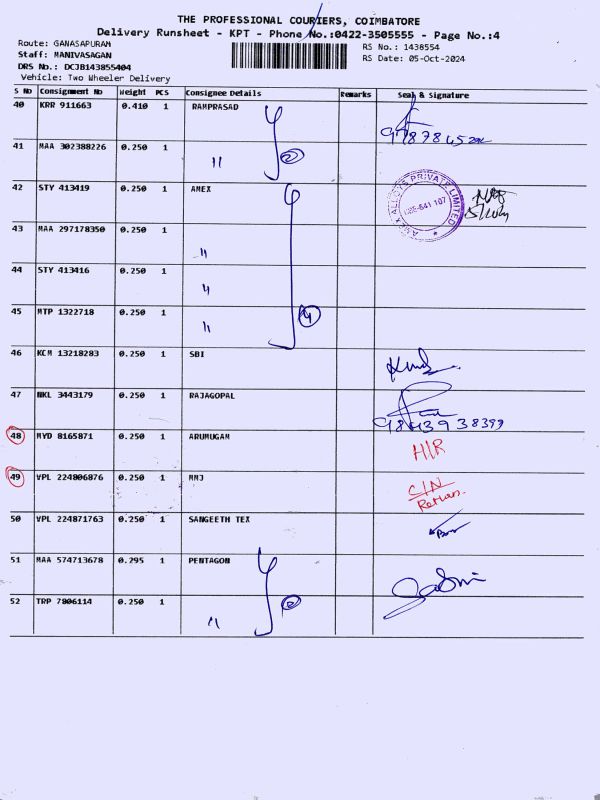 THE PROFESSIONAL COURIERS, COIMBATORE
Delivery Runsheet - KPT - Phone No.:0422-3505555 - Page No.:4
Route: GANASAPURAM
Staff: MANIVASAGAN
DRS No.: DCJB143855404
Vehicle: Two Wheeler Delivery
RS No.: 1438554
RS Date: 05-Oct-2024
S No Consignment No Weight PCS Consignee Details Remarks Seal & Signature
40 KRR 911663 0.410 1 RAMPRASAD
41 MAA 302388226 0.250 1 " 2
42 STY 413419 0.250 1 AMEX
AMEX ALLOYS PRIVATE LIMITED
CBE-641 107
43 MAA 297178350 0.250 1 "
44 STY 413416 0.250 1 "
45 MTP 1322718 0.250 1 " 4
46 KCM 13218283 0.250 1 SBI
47 NKL 3443179 0.250 1 RAJAGOPAL
9843938399
48 MYD 8165871 0.250 1 ARUMUGAM H/R
49 VPL 224806876 0.250 1 MMJ C/N
Return
50 VPL 224871763 0.250 1 SANGEETH TEX
51 MAA 574713678 0.295 1 PENTAGON
52 TRP 7806114 0.250 1 " 2